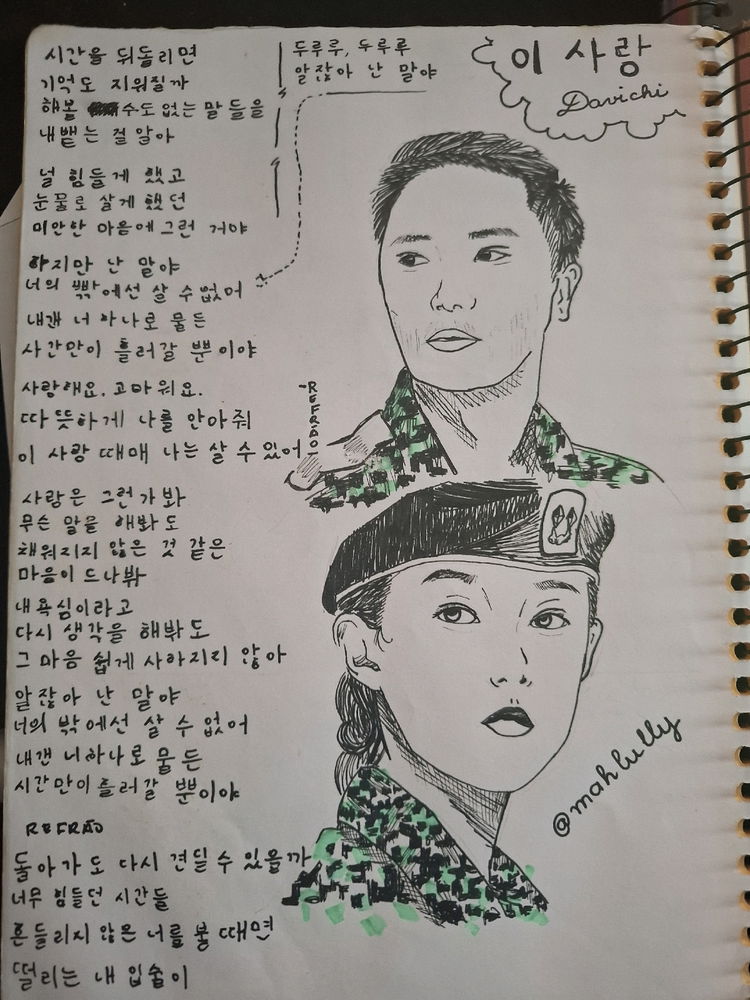 이 사랑
Davichi
시간을 뒤돌리면
기억도 지워질까
해볼 수도 없는 말들을
내뱉는 걸 알아
널 힘들게 했고
눈물로 살게 했던
미안한 마음에 그런 거야
하지만 난 말야
너의 밖에선 살 수 없어
내겐 너 하나로 물든
시간만이 흘러갈 뿐이야
사랑해요. 고마워요.
따뜻하게 나를 안아줘
이 사랑 때매 나는 살 수 있어
-REFRÃO-
사랑은 그런가봐
무슨 말을 해봐도
채워지지 않은 것 같은
마음이 드나봐
내 욕심이라고
다시 생각을 해봐도
그 마음 쉽게 사라지지 않아
알잖아 난 말야
너의 밖에선 살 수 없어
내겐 너 하나로 물든
시간만이 흘러갈 뿐이야
REFRÃO
돌아가도 다시 견딜 수 있을까
너무 힘들던 시간들
흔들리지 않은 너를 볼 때면
떨리는 내 입술이
두루루, 두루루
알잖아 난 말야
@mahlully